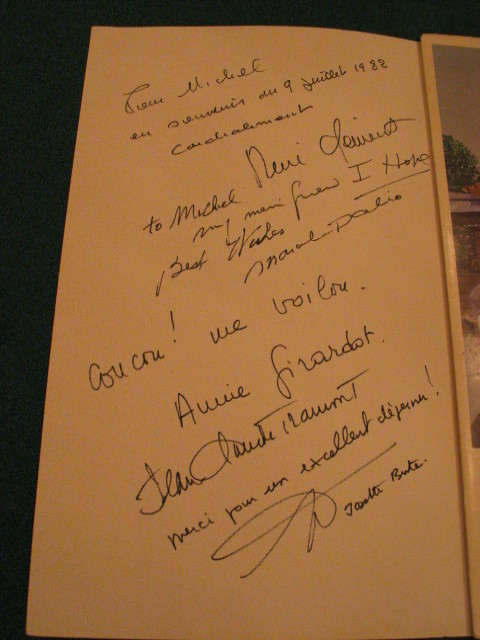 Pour Michel
en souvenir du 9 juillet 1982
cordialement
René Clément
to Michel
my new friend I Hope
Best Wishes
Marcel Dalio
Coucou! me voilou.
Annie Girardot.
Jean Claude
merci pour un excellent déjeuner!